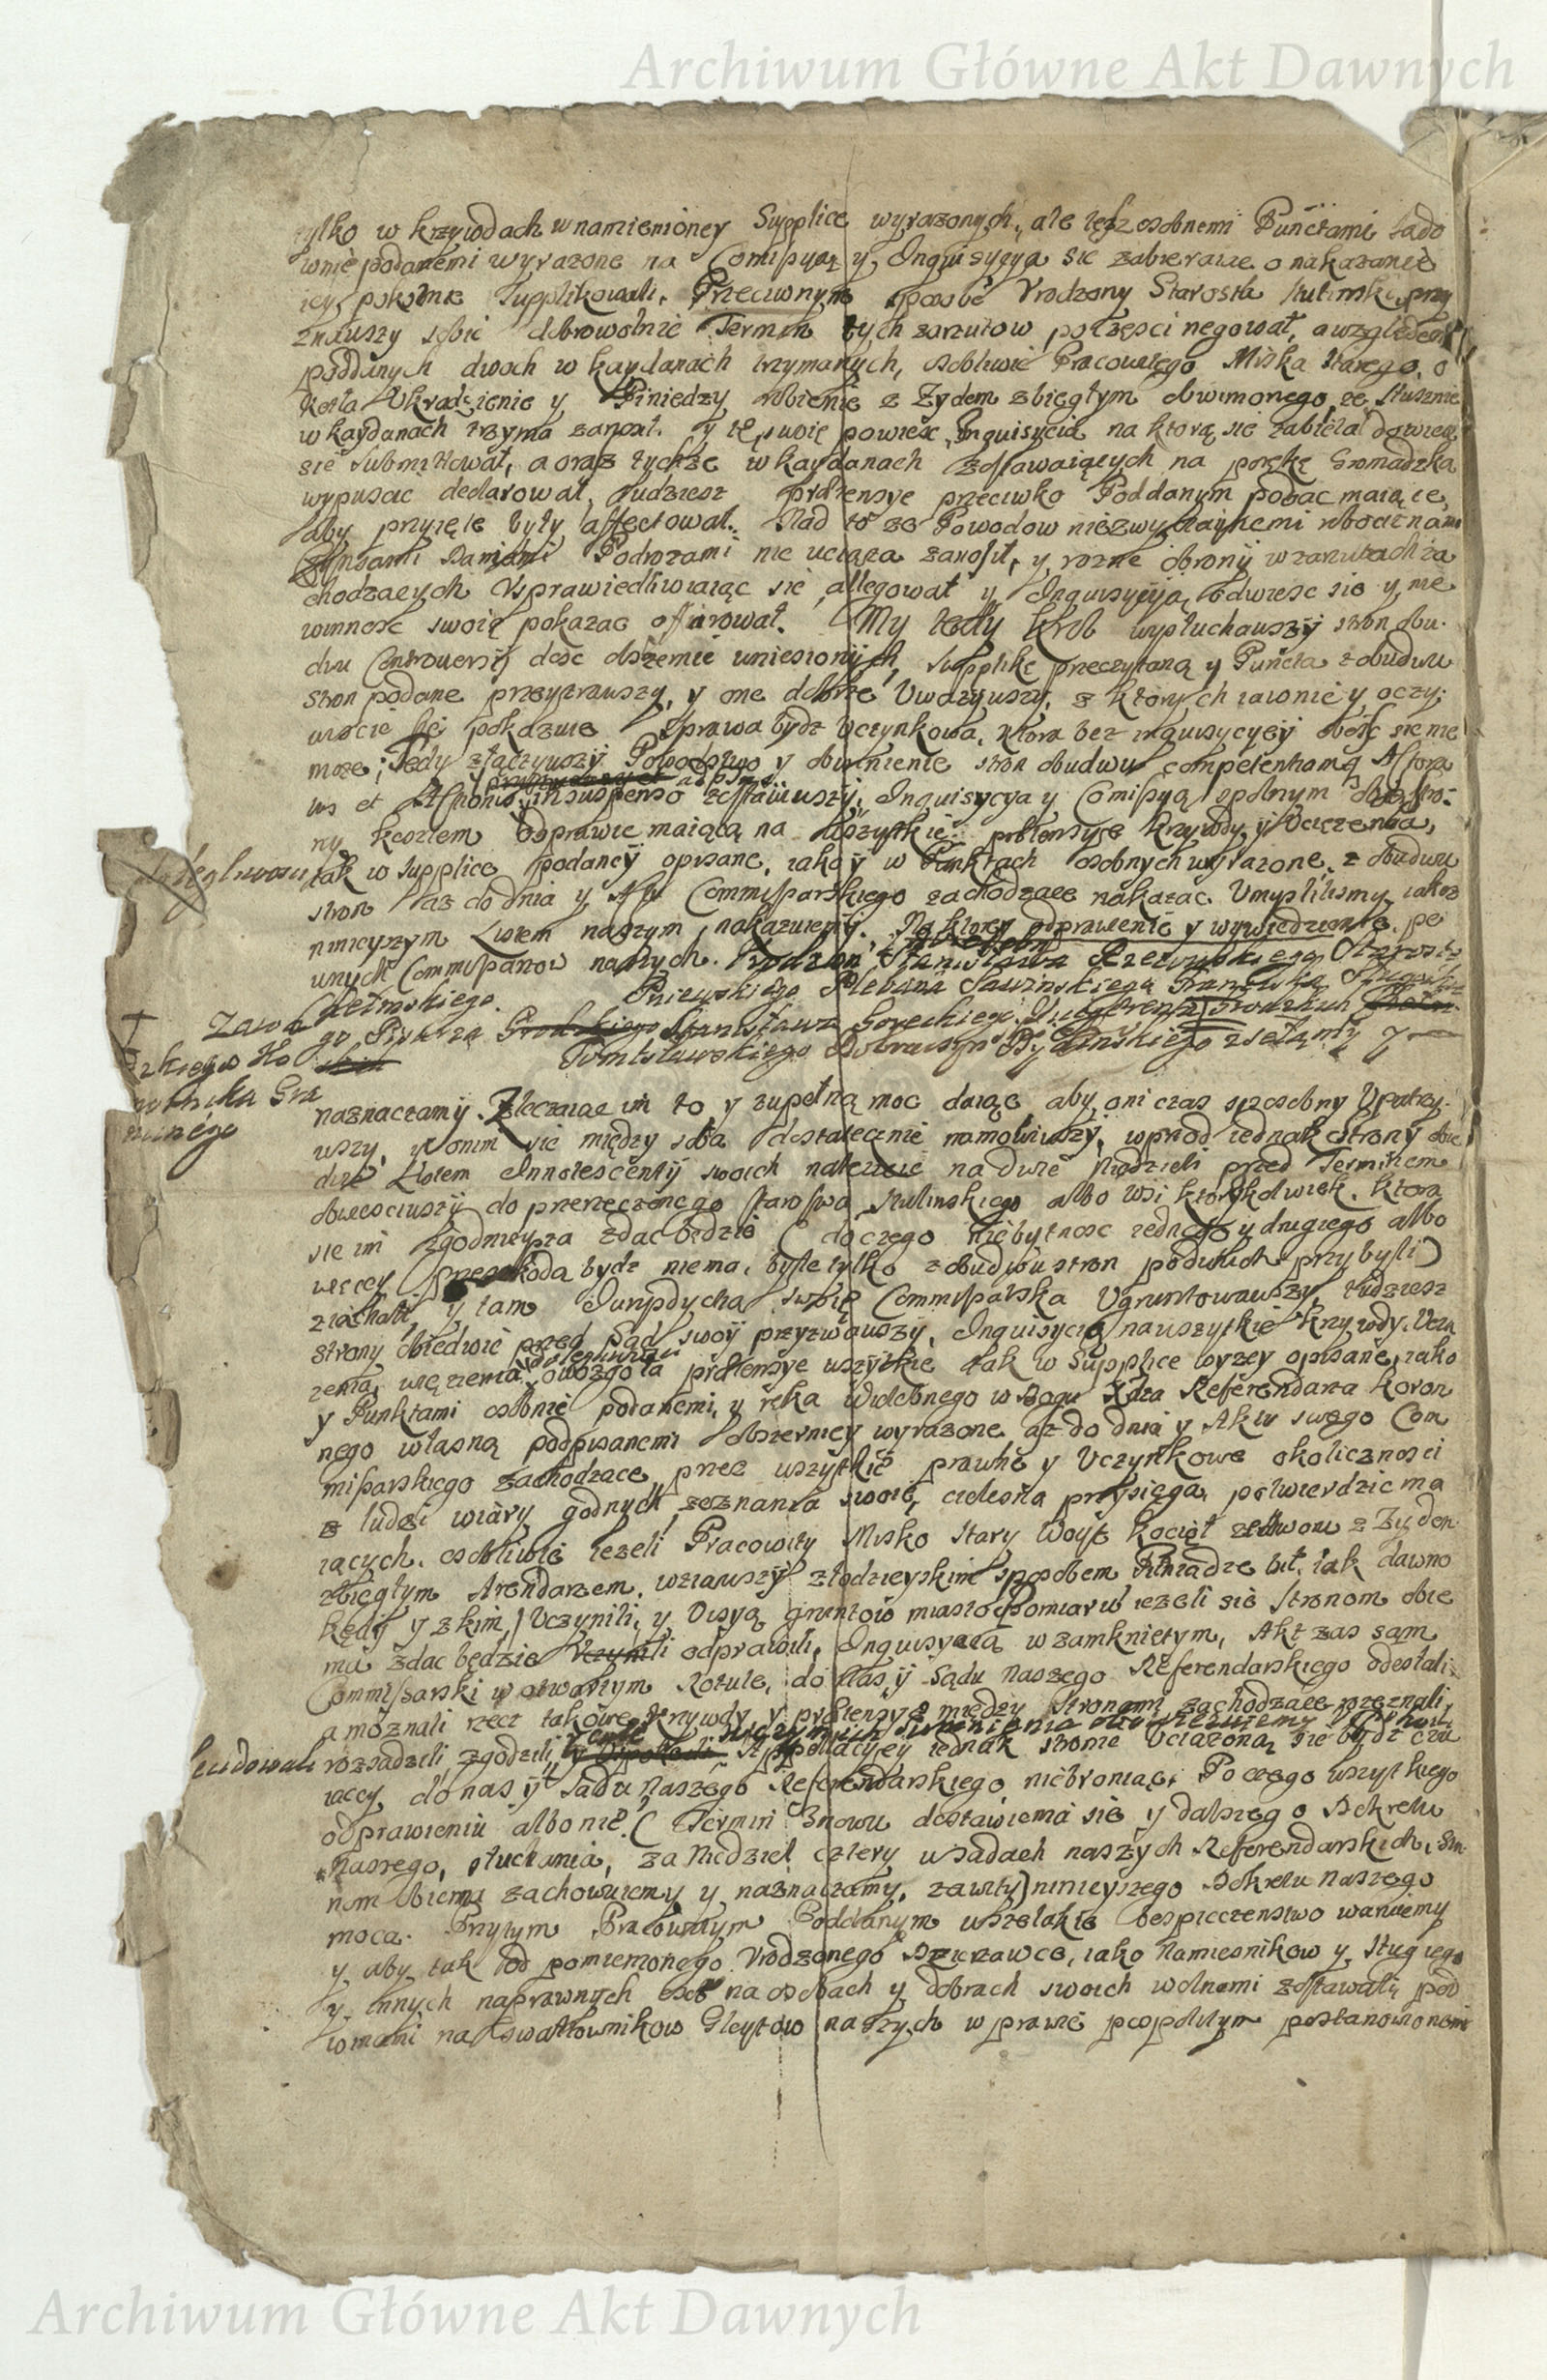 Archiwum Główne Akt Dawnych
tylko w krzywdach wnamienioney Supplice wyrazonych, ale tesz osobnemi Punctami sądo
wnie podanemi wyrazone na Comissyą y Inquisycyą się zabieraiąc o nakazanie
iey pokornie supplikowali. Przeciwnym sposobem Urodzony Starosta przy
znawszy sobie dobrowolnie Termin tych zarzutow poczęsci negował, a względem
poddanych dwoch w kaydanach trzymanych, osobliwie Pracowitego Miska starego, o
Kotła Ukradzienie y Piniedzy robienie z Zydem zbiegłym obwinionego, ze słusznie
w kaydanach trzyma zanosił. y tę swoię powiesc Inquisycią na ktorą się zabierał dowiesc
się submittował, a oraz tychze w kaydanach zostawaiących na porękę Gromadzką
wypuscic declarował, tudziesz prætensye przeciwko Poddanym podac maiące,
aby przyięte były affectował. Nad to ze Powodow niezwyczaynemi robociznami
Czynszami Daniami Podrozami nie uciąza zanosił, y rozne obrony w zarzutach za
chodzących Usprawiedliwiaiąc się allegował y Inquisycyią odwiesc się y nie
winnosc swoię pokazac offiarował. My tedy Krol wysłuchawszy stron obu
dwu Controwersij dosc obszernie uniesionych, supplikę przeczytaną y Puncta z obudwu
stron podane przeyzrawszy, y one dobrze Uwazywszy, z ktorych iawnie y oczy
wiscie się pokazuie sprawa bydz Uczynkowa, ktora bez inquisycyey obeysc się nie
moze; Tedy złączywszy Powodztwo y obwinienie stron obudwu competentium Actora
tus et in suspenso zostawiwszy, Inquisycya y Comissyą spolnym obu stro
ny kosztem odprawic maiącą na wszytkie prætensye krzywdy y Uciązenia,
dolegliwosci
tak w supplice podaney opisane, iako y w Punktach osobnych wyrazone, z obudwu
stron az do dnia y Aktu Commissarskiego zachodzące nakazac Umyslilismy, iakoz
ninieyszym Listem naszym nakazuiemy. Na ktorey odprawienie y wywiedzienie, pe
wnych Commissarzow naszych. Stanisława Rzewuskiego Starostę
Chełmskiego. Pniewskiego Plebana Sawinskiego
go Pisarza Grodzkiego Stanisława Goreckiego
zsełamy y
naznaczamy. Zlecaiąc im to y zupełną moc daiąc, aby oni czas sposobny Upatrzy
wszy, y onim się między sobą dostatecznie namowiwszy, wprzod iednak strony obie
dwie Listem Innotescentij swoich nalezycie na dwie Niedzieli przed Terminem
obwiesciwszy do przerzeczonego starostwa albo wsi ktoreykolwiek, ktora
się im zgodnieysza zdac będzie (do czego niebytnosc iednego y drugiego albo
więcey przeszkodą bydz niema, byle tylko z obudwu stron podwuch przybyli)
ziachali, y tam Jurisdyctią swoię Commissarską Ugruntowawszy, tudziesz
strony obiedwie przed sąd swoy przyzwawszy, Inquisycią na wszytkie krzywdy, Ucią
zenia, więzienia, dolegliwosci owozgoła prætensye wszytkie tak w Supplice wyzey opisane, iako
y Punktami osobnie podanemi, y ręką Wielebnego w Bogu Xdza Referendarza Koron
nego własną podpisanemi obszerniey wyrazone, az do dnia y Aktu swego Com
missarskiego zachodzące, przez wszytkie prawne y Uczynkowe okolicznosci
z ludzi wiary godnych, zeznania swoie, cielesną przysięgą potwierdzic ma
iących, osobliwie iezeli Pracowity Misko stary Woyt kocieł zedworu z Zydem
zbiegłym Arendarzem, wziąwszy złodzieyskim sposobem Piniadze bił, iak dawno
kędy y z kim, Uczynili, y Visyą gruntow miasto Pomiaru iezeli się Stronom obie
ma zdac będzie odprawili. Inquisycią w zamkniętym, Akt zas sam
Commissarski w otwartym Rotule, do nas y Sądu naszego Referendarskiego odesłali,
a moznali rzecz takowe krzywdy y prætensye między Stronami zachodzące rozeznali,
rozsądzili, zgodzili, Appellacyey iednak stronie Uciązoną się bydz czu
iącey, do nas y Sądu naszego Referendarskiego niebroniąc. Po czego wszytkiego
odprawieniu albo nie (Termin znowu dostawienia się y dalszego Dekretu
naszego, słuchania, za Niedziel cztery w sądach naszych Referendarskich, stro
nom obiema zachowuiemy y naznaczamy, zawity) ninieyszego Dekretu naszego
mocą. Przytym Pracowitym Poddanym wszelakie bespieczenstwo waruiemy
y aby tak od pomienionego Urodzonego Dzierzawce, iako Namiesnikow y sług iego
y innych naprawnych osob na osobach y dobrach swoich wolnemi zostawali, pod
winami na Gwałtownikow Gleytow naszych w prawie pospolitym postanowionemi
Archiwum Główne Akt Dawnych